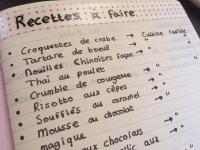 Recettes à faire
• Croquettes de crabe → Cuisine
• Tartare de boeuf → "
• Nouilles Chinoises façon → "
Thai au poulet
• Crumble de courgette → "
• Risotto aux cèpes → "
• Soufflés au caramel → "
• Mousse au chocolat → "
magique
aux chocolats → "